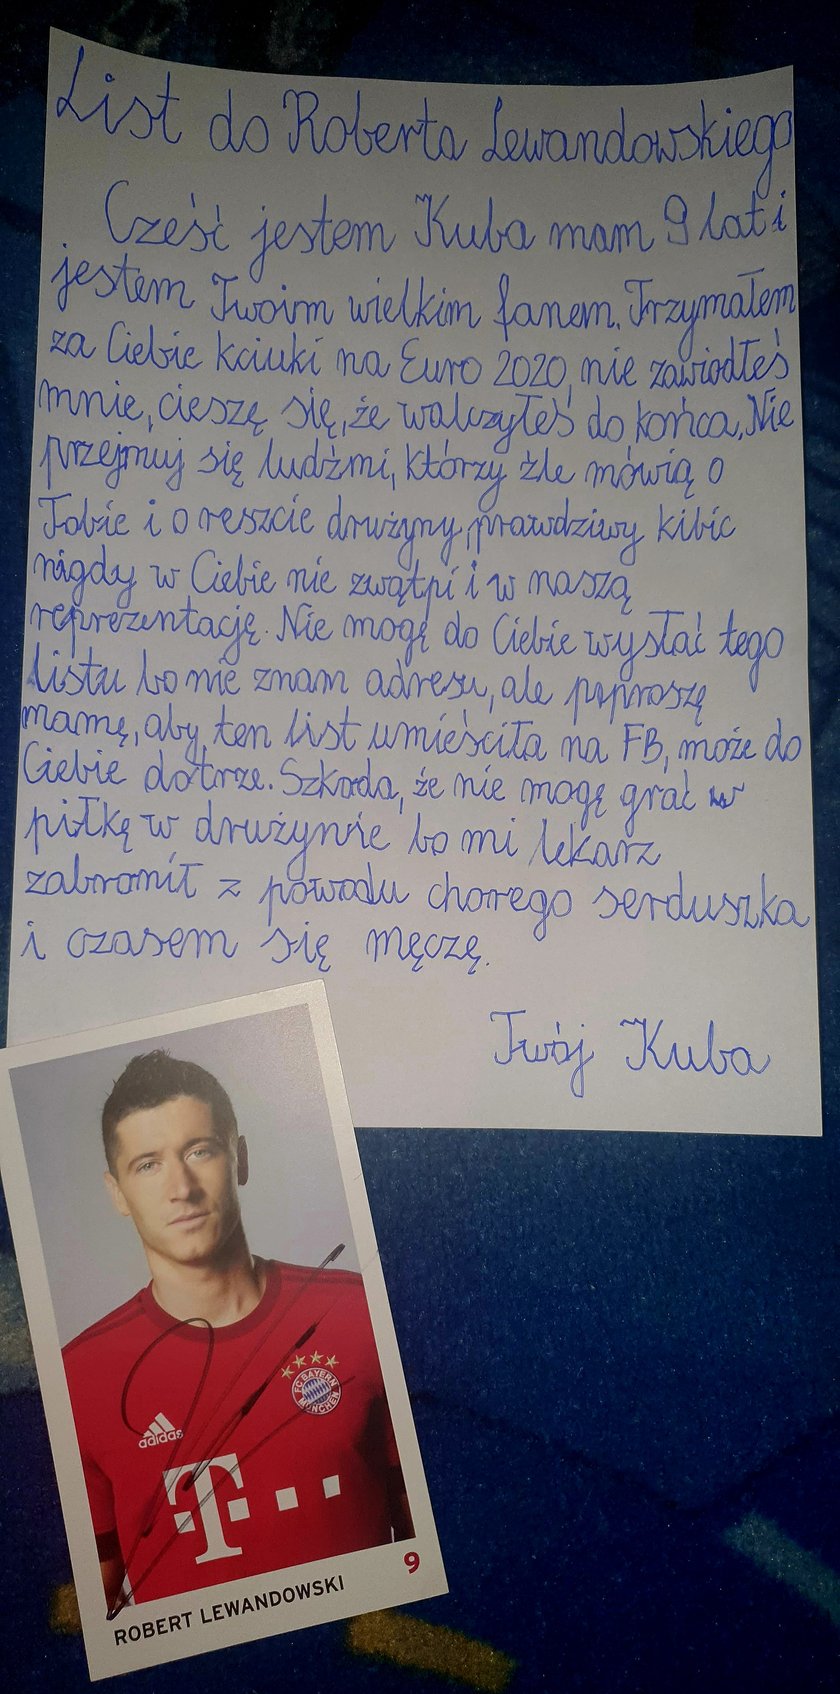 List do Roberta Lewandowskiego
Cześć jestem Kuba mam 9 lat i
jestem Twoim wielkim fanem. Trzymałem
za Ciebie kciuki na Euro 2020, nie zawiodłeś
mnie, cieszę się, że walczyłeś do końca. Nie
przejmuj się ludźmi, którzy źle mówią o
Tobie i o reszcie drużyny, prawdziwy kibic
nigdy w Ciebie nie zwątpi i w naszą
reprezentację. Nie mogę do Ciebie wysłać tego
listu bo nie znam adresu, ale poproszę
mamę, aby ten list umieściła na FB, może do
Ciebie dotrze. Szkoda, że nie mogę grać w
piłkę w drużynie bo mi lekarz
zabronił z powodu chorego serduszka
i czasem się męczę.
Twój Kuba
FC BAYERN
MÜNCHEN
adidas
T
9
ROBERT LEWANDOWSKI